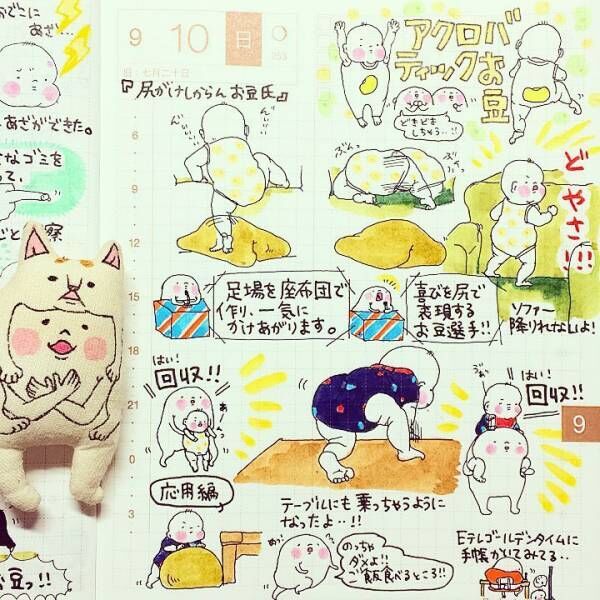 でこに
あざ…
あざができた。
なゴミを
って、
ごと
察
9 10 日
253
旧:七月二十日
『尻がけしからんお豆氏』
アクロバ
ティックお
豆
どきどき
しちゃう…!!
ぶんっ
ぶんっ
どやさ!!!
6
9
12
15
18
21
0
3
足場を座布団で
作り、一気に
かけあがります。
喜びを尻で
表現する
お豆選手!!
ソファー
降りれないよ!
はい!
回収!!
はい!
回収!!
9
応用編
テーブルにも乗っちゃうように
なったよ…!!
のっちゃ
ダメよ!!
ご飯食べるところ!!
Eテレゴールデンタイムに
手帳かいてみてる…
お豆っ!!